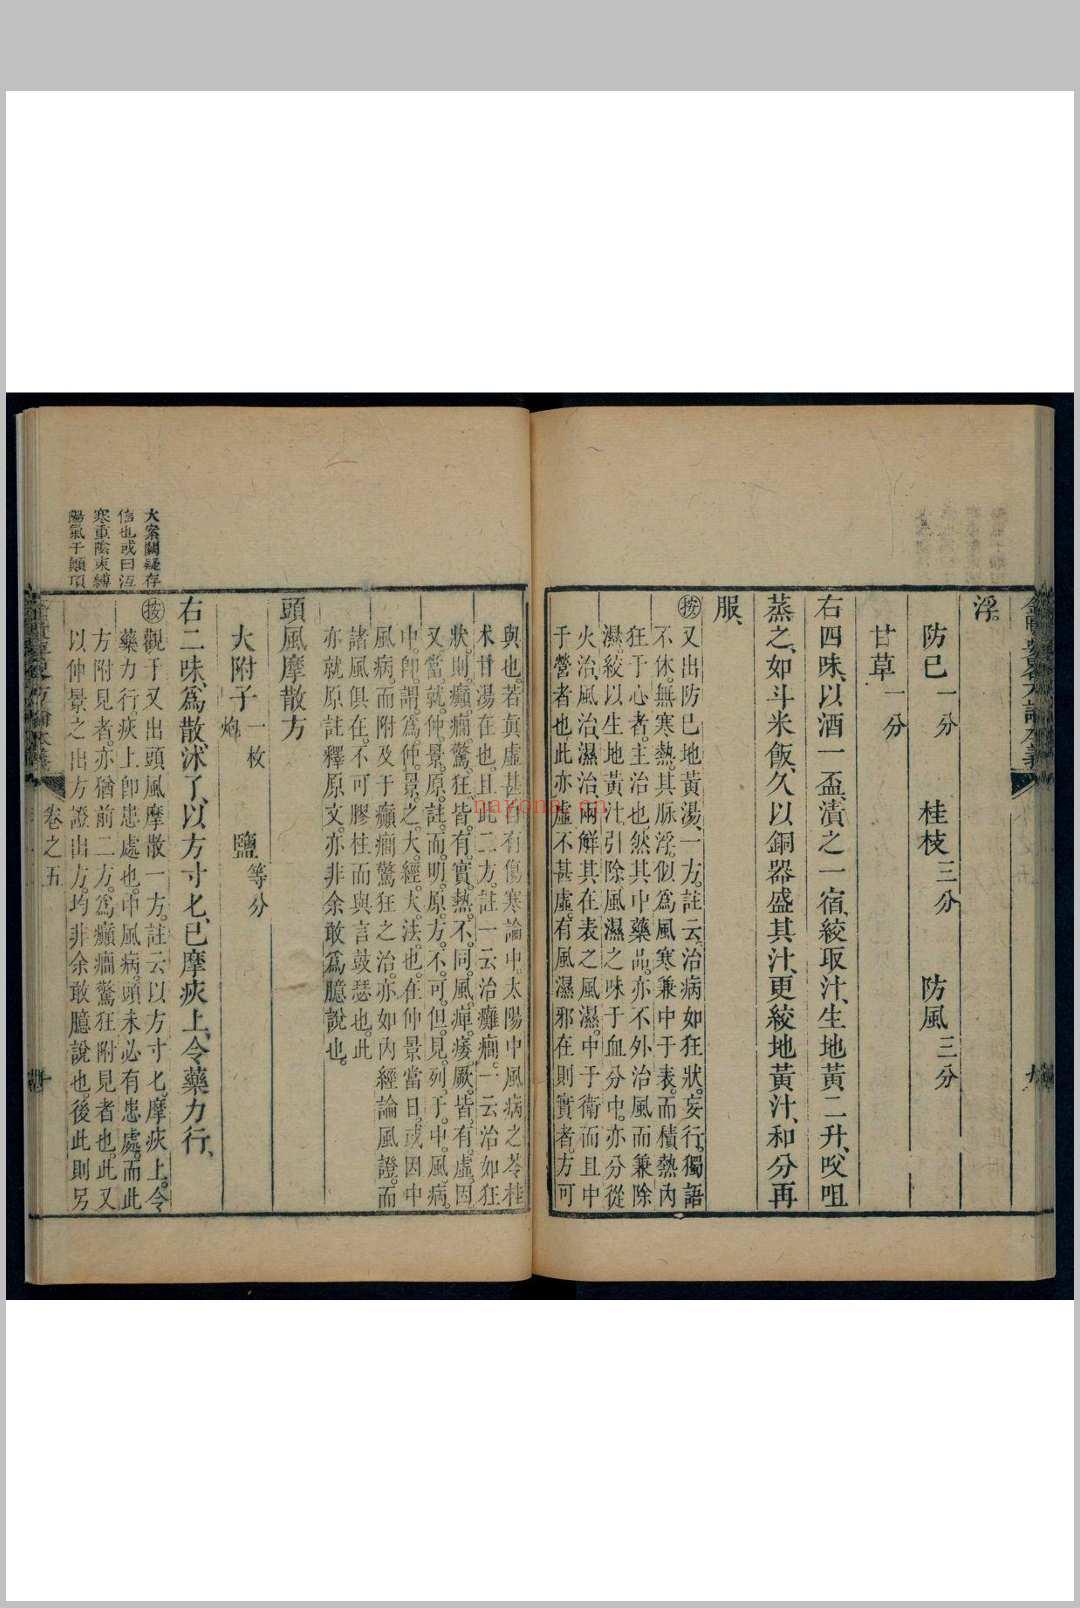 浮。
防已一分 桂枝三分 防風三分
甘草一分
右四味、以酒一盃、漬之一宿、絞取汁、生地黃二升、㕮咀
蒸之、如斗米飯、久以銅器盛其汁、更絞地黃汁、和分再
服、
按又出防已地黃湯、一方。註云、治病如狂狀。妄行。獨語
不休。無寒熱。其脉浮。似爲風寒兼中于表。而積熱內
狂于心者。主治也然。其中藥品。亦不外治風而兼除
濕。絞以生地黃汁引除風濕之味于血分中。亦分從
火治、風治、濕治、兩解其在表之風濕。中于衛而且中
于營者也此亦虛不甚虛。有風濕邪在則實者。方可
與也。若眞虛甚自有傷寒論中。太陽中風病之苓桂
术甘湯在也。且此二方。註一云治癱癎。一云治如狂
狀。則。癲癎驚。狂。皆。有。實。熱。不。同。風。痺。痿。厥。皆。有。虛。因。
又。當。就。仲。景。原。註。而。明。原。方。不。可。但。見。列。于。中。風。病。
中。卽。謂。爲。仲。景。之。大。經。大。法。也。在仲景當日。或因中
風病而附及于癲癎驚狂之治。亦如內經論風證。而
諸風俱在。不可膠柱而與言鼓瑟也。此
亦就原註釋原文。亦非余敢爲臆說也。
頭風摩散方
大附子一枚炮 鹽等分
右二味、爲散沭了、以方寸匕、已摩疢上、令藥力行、
按觀于又出頭風摩散一方。註云以方寸匕。摩疢上。令
藥力行。疢上卽患處也。中風病。頭未必有患處。而此
方附見者。亦猶前二方。爲癲癎驚狂附見者也。此又
以仲景之出方證出方。均非余敢臆說也。後此則另
大案闕疑存
信也或曰沍
寒重陰束縛
陽氣于顚項
卷之五
nayona.cn